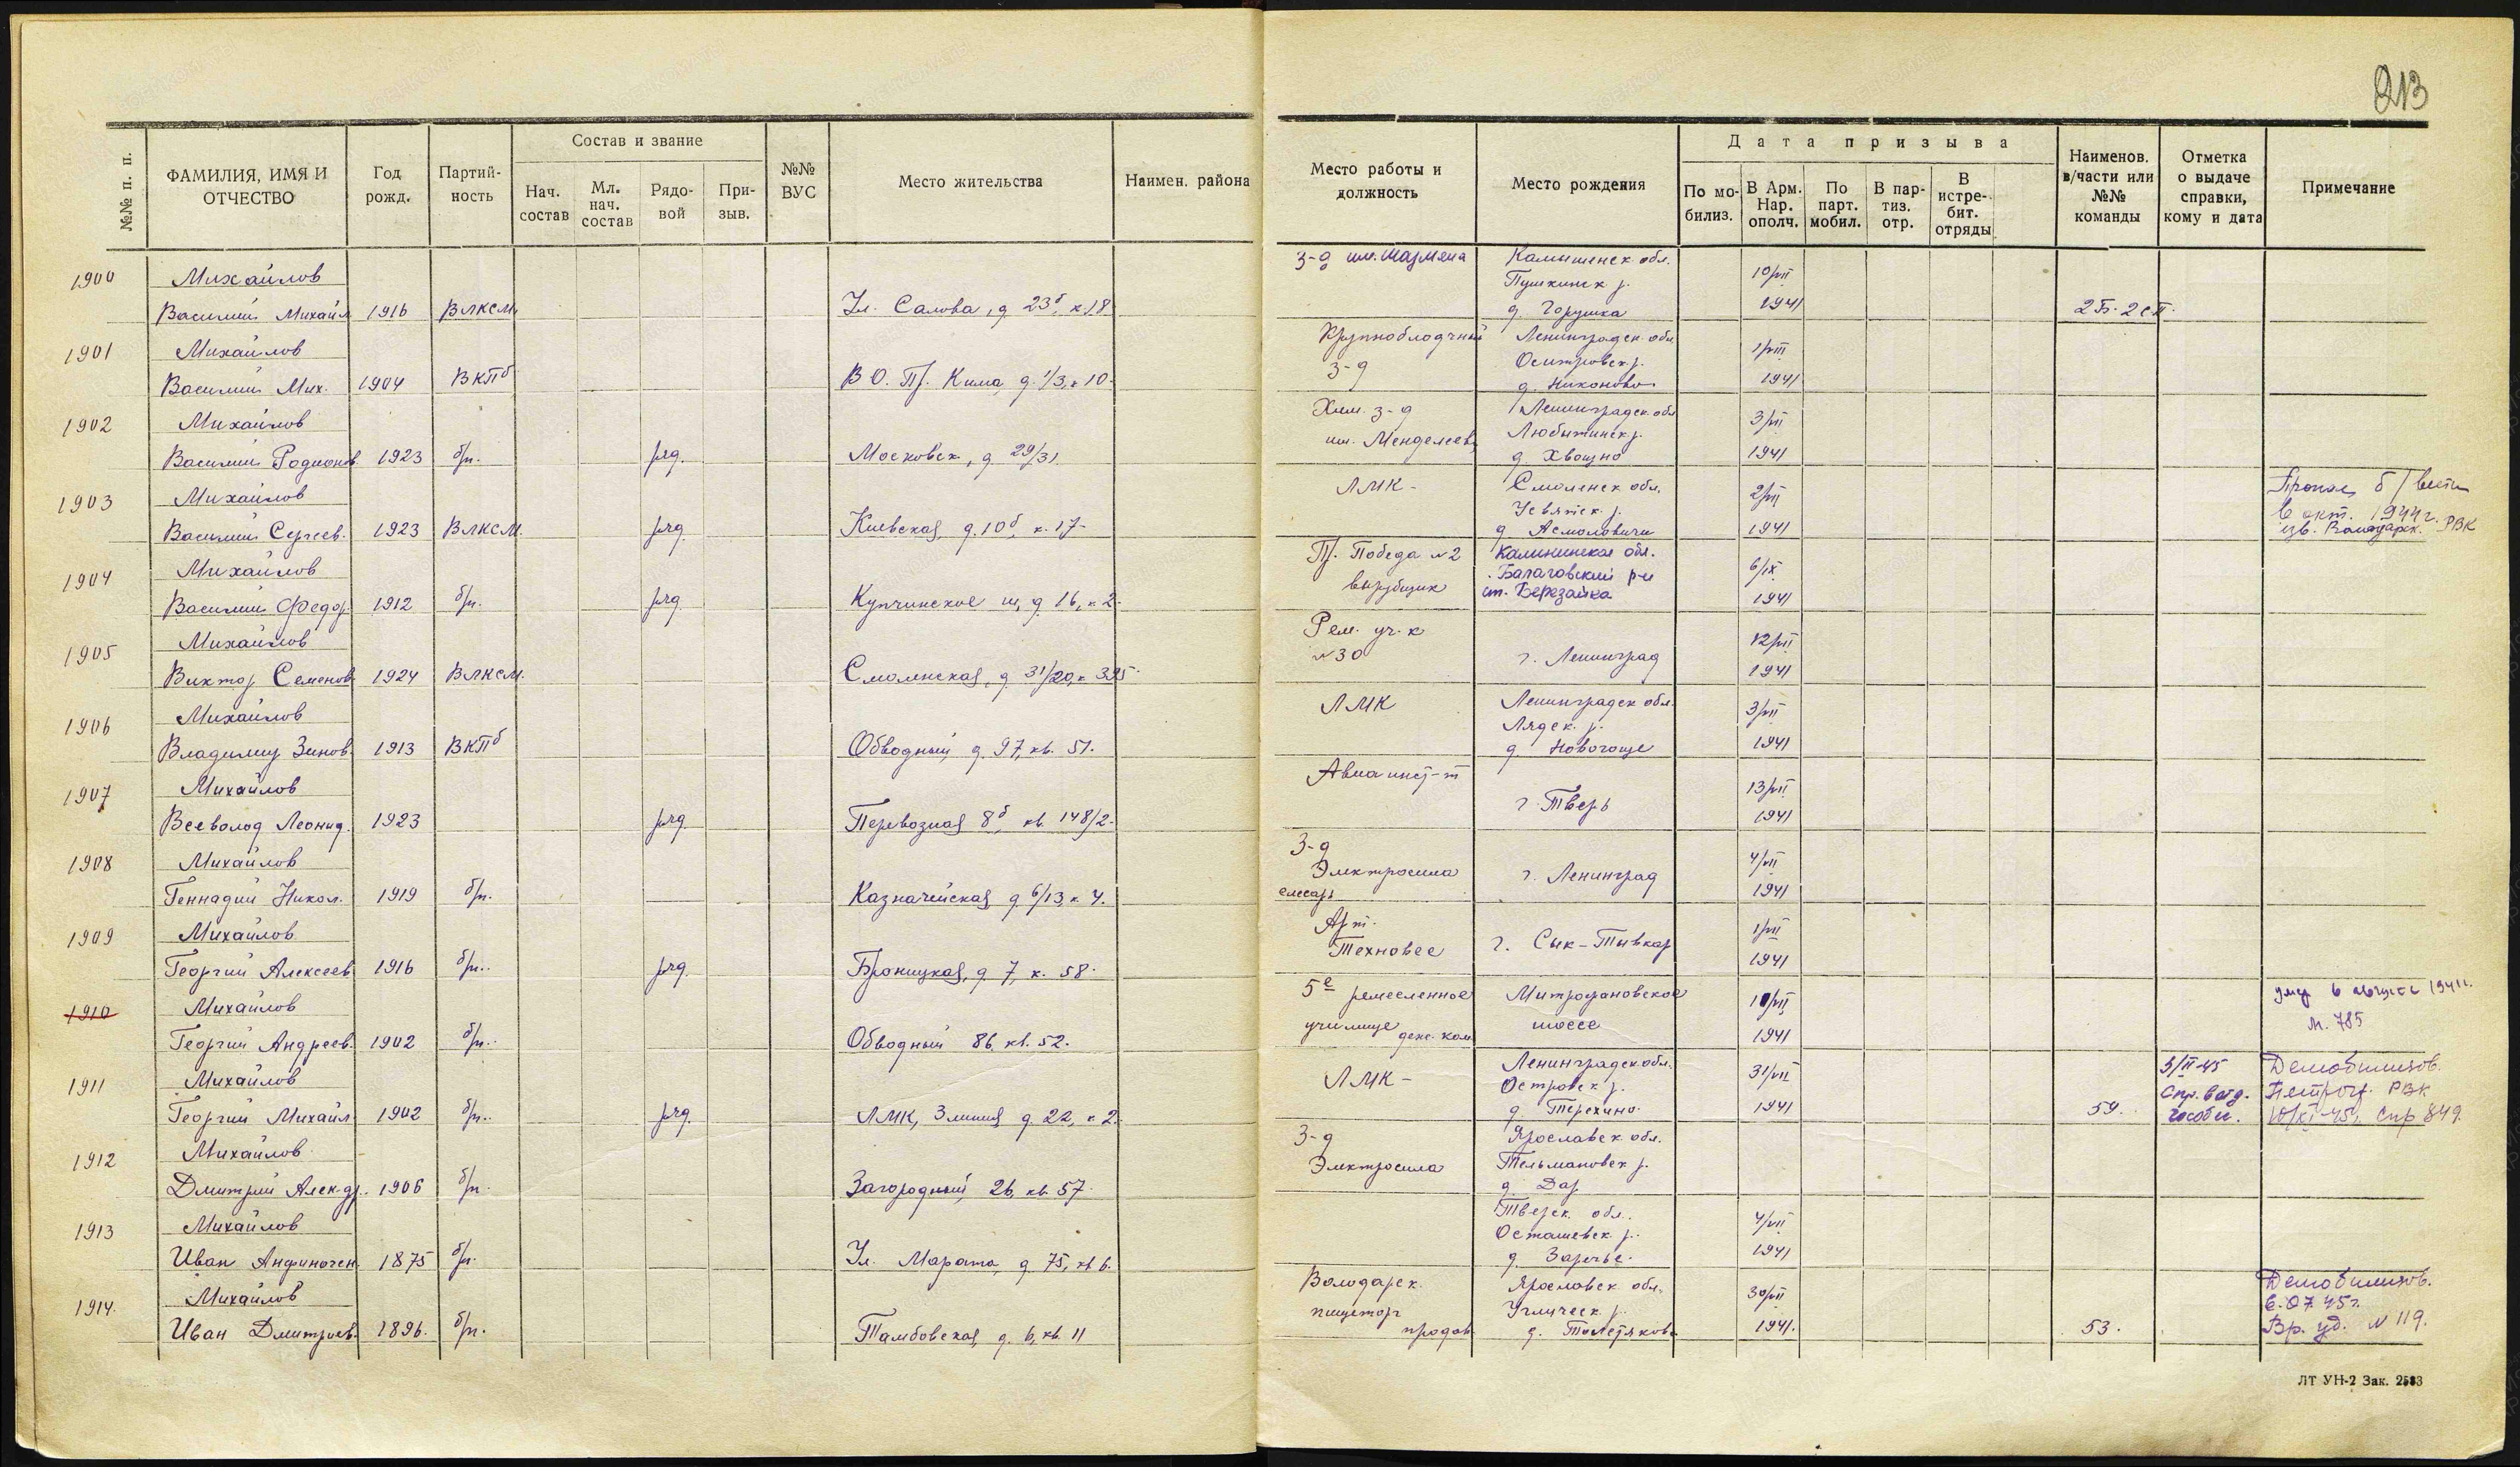 213
№№ п. п.
ФАМИЛИЯ, ИМЯ И ОТЧЕСТВО
Год рожд.
Партий-ность
Состав и звание
Нач. состав
Мл. нач. состав
Рядо-вой
При-зыв.
№№ ВУС
Место жительства
Наимен. района
Место работы и должность
Место рождения
Дата призыва
По мо-билиз.
В Арм. Нар. ополч.
По парт. мобил.
В пар-тиз. отр.
В истре-бит. отряды
Наименов. в/части или №№ команды
Отметка о выдаче справки, кому и дата
Примечание
1900 Михайлов
Василий Михайл 1916 ВЛКСМ Ул. Салова, д. 23б, к. 18
з-д им. Шаумяна
Калининск. обл.
Пушкинск р.
д. Горушка
10/VII 1941
2Б. 2СП.
1901 Михайлов
Василий Мих. 1904 ВКПб В О. Пр. Кима, д. 1/3, к 10.
з-д
Ленинградск. обл
д. Никоново
1/VIII 1941
1902 Михайлов
Василий Родионов. 1923 б/п. ряд. Московск, д. 29/31
Хим. з-д им. Менделеева
Ленинградск. обл
Любытинск р.
д. Хвощно
3/VII 1941
1903 Михайлов
Василий Сергеев. 1923 ВЛКСМ. ряд Киевская, д. 10б, к. 17-
ЛМК-
Смоленск обл.
Усвятск. р.
д Асмоловичи
2/VII 1941
Пропал б/вести
в окт. 1944г.
изв. Володарск. РВК
1904 Михайлов
Василий Федор. 1912 б/п. ряд Купчинское ш, д 16, к 2.
Пр. Победа №2
вырубщик
Калининская обл.
Бологовский р-н
ст. Березайка
6/IX 1941
1905 Михайлов
Виктор Семенов. 1924 ВЛКСМ. Смоленская, д. 31/20, к 395
Рем. уч. к №30
г. Ленинград
12/VII 1941
1906 Михайлов
Владимир Зинов. 1913 ВКПб Обводный, д. 97, кв. 51.
ЛМК
Ленинградск обл.
Лядск. р.
д.
3/VII 1941
1907 Михайлов
Всеволод Леонид. 1923 ряд Перевозная 8б, кв. 148/2-
Авиа инст-т
г. Тверь
13/VII 1941
1908 Михайлов
Геннадий Никол. 1919 б/п. Казначейская, д 6/13, к 4.
З-д Электросила
слесарь
г. Ленинград
4/VII 1941
1909 Михайлов
Георгий Алексеев 1916 б/п.. ряд. Броницкая, д 7, к. 58.
Арт. Техновес
г. Сык-Тывкар
1/VII 1941
1910 Михайлов
Георгий Андреев. 1902 б/п.. Обводный 86, кв. 52.
5е ремесленное
училище
Митрофановское
шоссе
1941
умер 6 августа 1941г.
М. 785
1911 Михайлов
Георгий Михайл 1902 б/п.. ряд. ЛМК, 3 линия, д. 22, к 2.
ЛМК-
Ленинградск обл.
Островск р.
д. Терехино.
31/VII 1941
59.
Демобилизов.
Петрогр. РВК
10/XI-45г. Спр 849
1912 Михайлов
Дмитрий Алек-др. 1906 б/п. Загородный, 26, кв. 57.
З-д Электросила
Ярославск обл.
Тельмановск р.
д. Дар
1913 Михайлов
Иван 1875 б/п. Ул. Марата, д. 75, кв 6.
Тверск. обл.
Осташевск. р.
д. Заречье.
4/VII 1941
1914. Михайлов
Иван Дмитриев. 1896. б/п. Тамбовская, д. 6, кв. 11
Володарск.
пищеторг
продав
Ярославск обл.
Угличск. р.
30/VII 1941.
53.
Демобилизов.
6.07.45г.
Вр. уд. № 119.
ЛТ УН-2 Зак. 2583